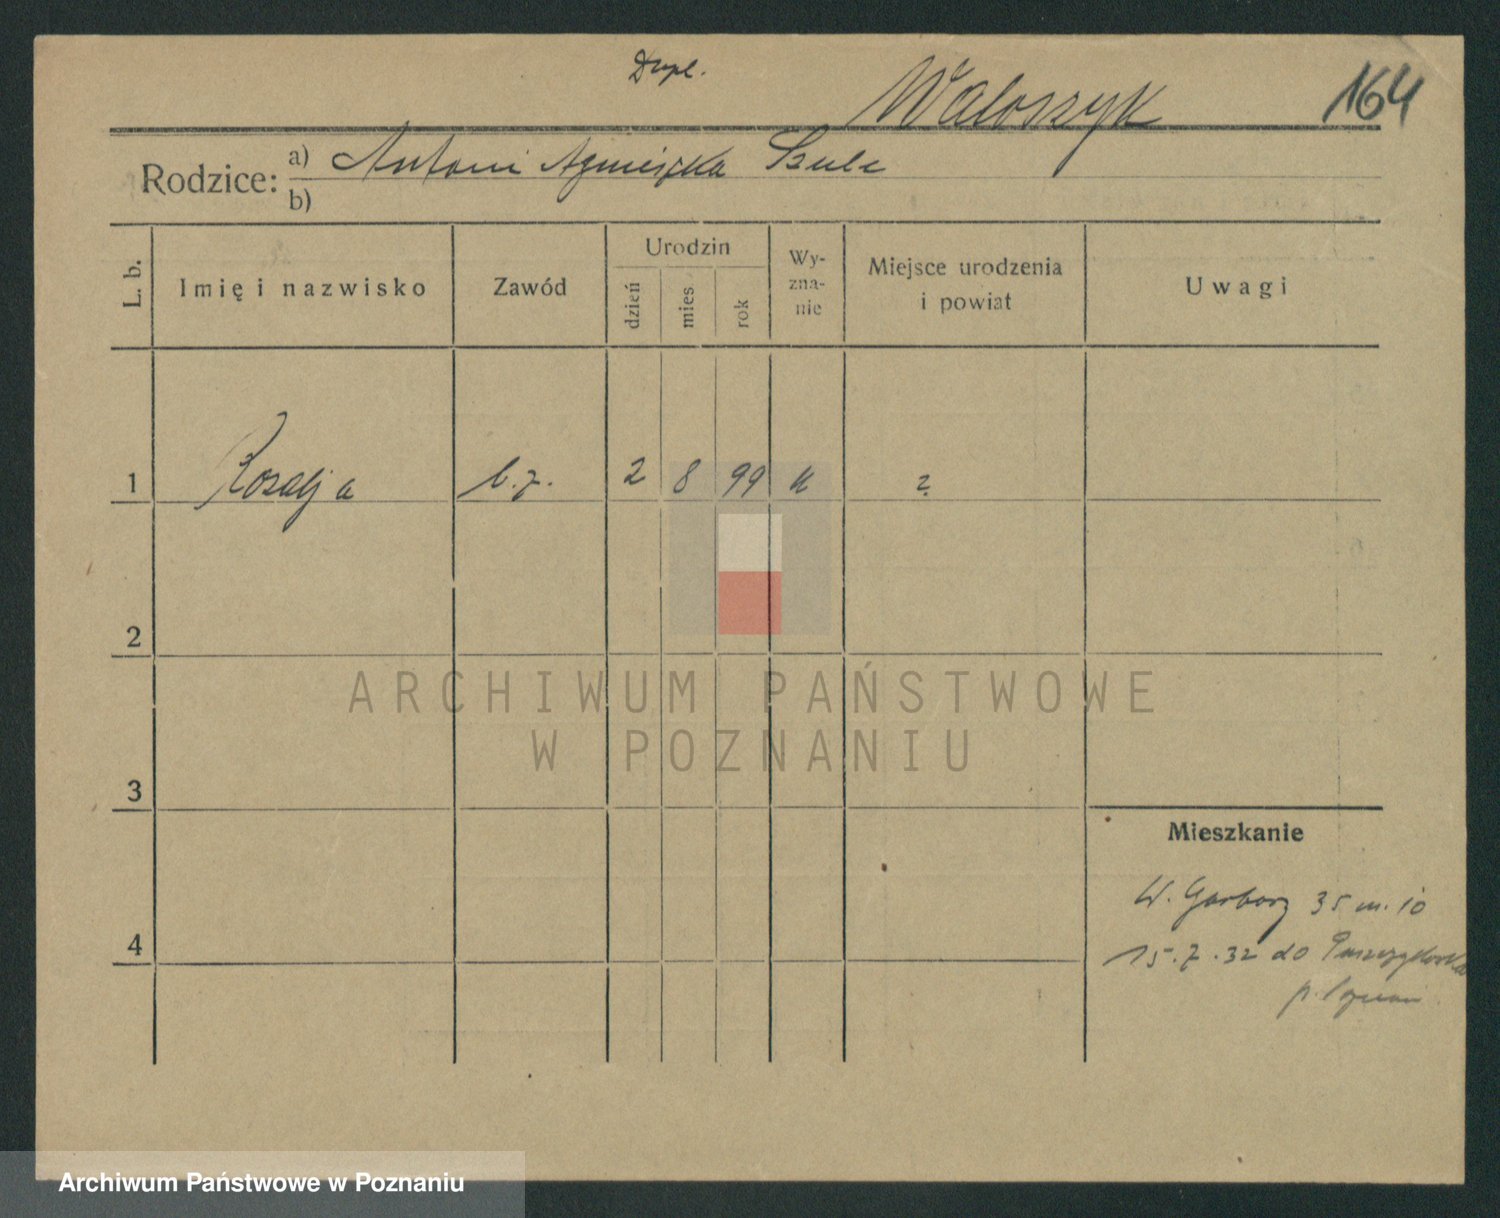 Dupl.
Waloszyk
164
Rodzice: a) Antoni Agnieszka Szulc
b)
L. b.
Imię i nazwisko
Zawód
Urodzin
dzień
mies
rok
Wy-
zna-
nie
Miejsce urodzenia
i powiat
Uwagi
1 Rozalja b.z. 2 8 99 k ?
2
ARCHIWUM PAŃSTWOWE
W POZNANIU
3
Mieszkanie
W. Garbary 35 m. 10
4
15.7.32 do
p.
Archiwum Państwowe w Poznaniu